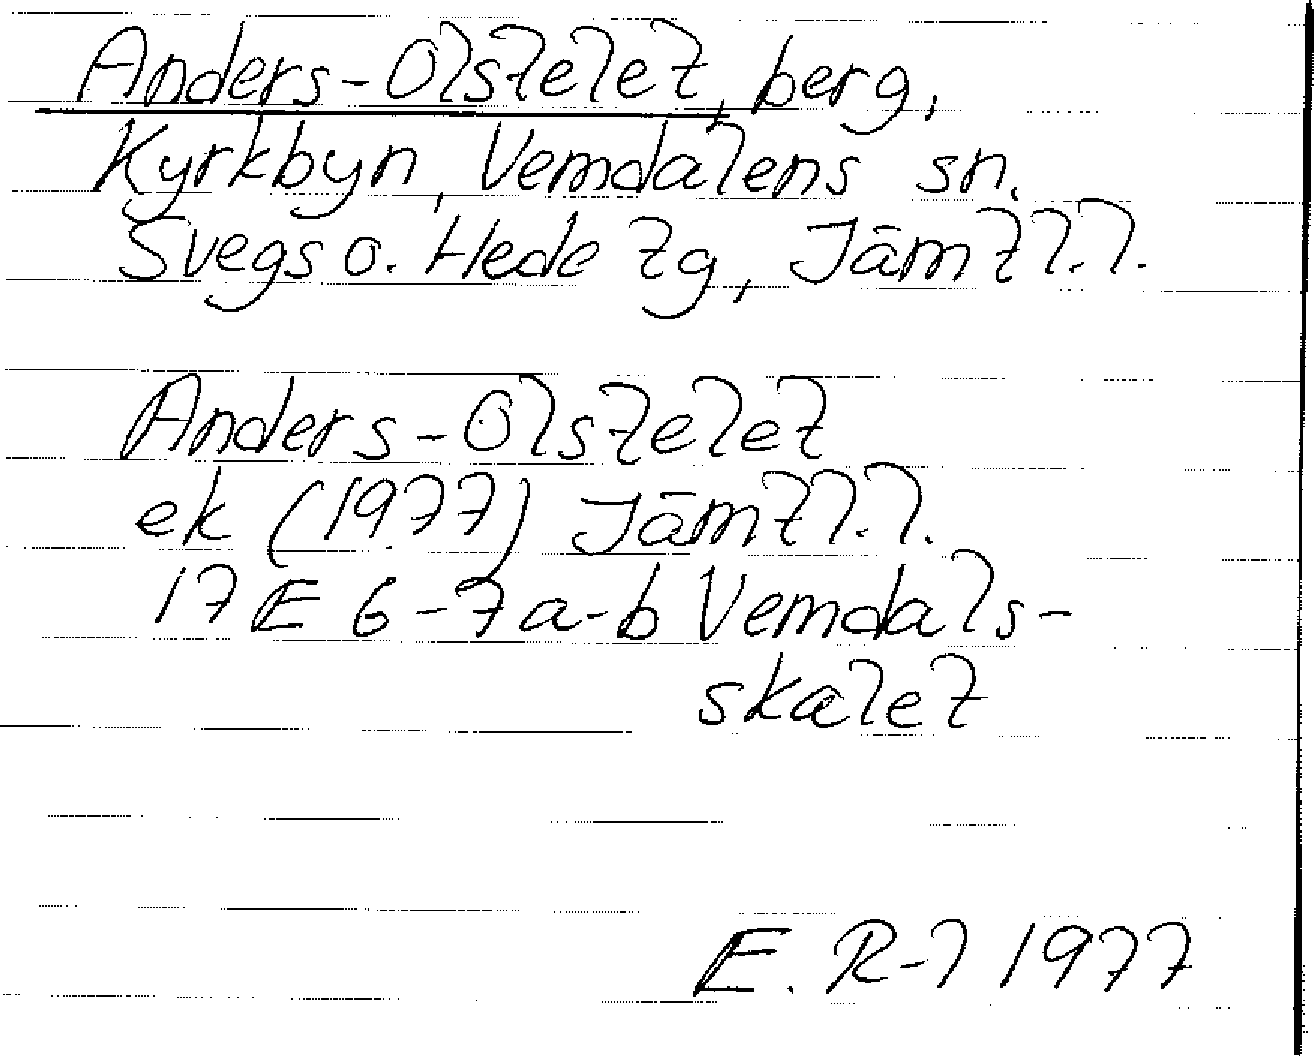 Anders-Olstelet, berg,
Kyrkbyn, Vemdalens sn.
Svegs o. Hede tg, Jämtl.l.
Anders-Olstelet
ek (1977) Jämtl.l.
17E 6-7a-b Vemdals-
skalet
E. R-l 1977